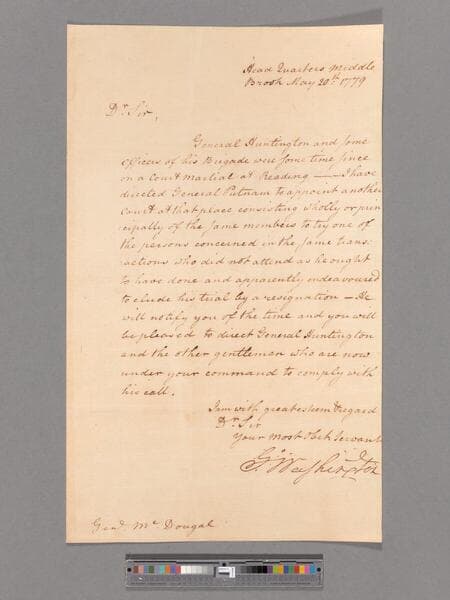 Head Quarters Middle
Brook May 20th. 1779
Dr. Sir,
General Huntington and some
officers of his Brigade were some time since
on a Court Martial at Reading — I have
directed General Putnam to appoint another
Court at that place consisting wholly or prin
cipally of the same members to try one of
the persons concerned in the same trans:
actions who did not attend as he ought
to have done and apparently endeavoured
to elude his trial by a resignation — He
will notify you of the time and you will
be pleased to direct General Huntington
and the other gentlemen who are now
under your command to comply with
his call.
I am with great esteem & regard
Dr. Sir
Your most Obet Servant
Go: Washington
Genl. Mc. Dougal